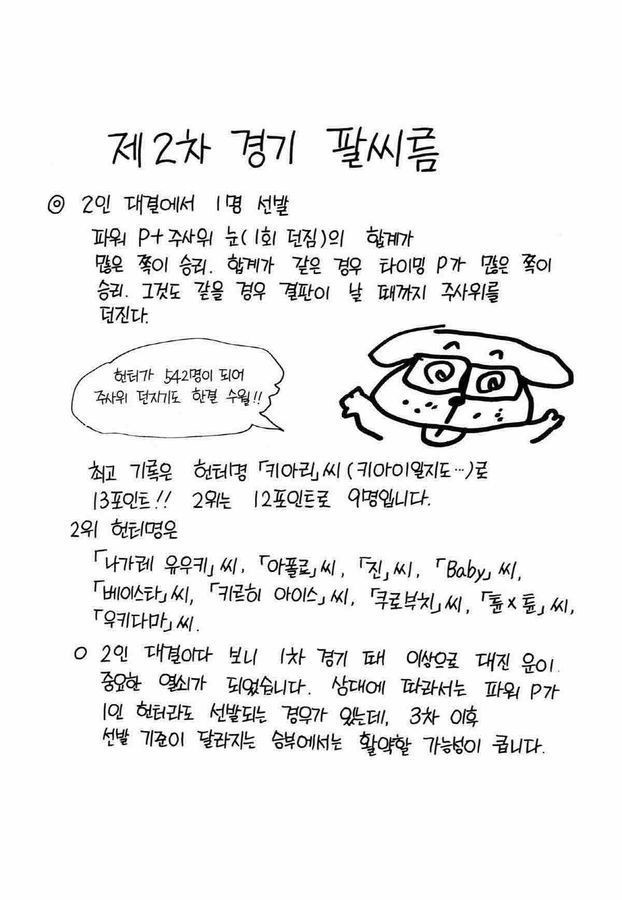 제2차 경기 팔씨름
◎ 2인 대결에서 1명 선발
파워 P+주사위 눈(1회 던짐)의 합계가
많은 쪽이 승리. 합계가 같은 경우 타이밍 P가 많은 쪽이
승리. 그것도 같을 경우 결판이 날 때까지 주사위를
던진다.
헌터가 542명이 되어
주사위 던지기도 한결 수월!!
최고 기록은 헌터명 「키아리」씨(키아이일지도…)로
13포인트!! 2위는 12포인트로 9명입니다.
2위 헌터명은
「나가레 유우키」씨, 「아폴로」씨, 「진」씨, 「Baby」씨,
「베이스타」씨, 「키르히 아이스」씨, 「쿠로부치」씨, 「툰×툰」씨,
「우키다마」씨.
○ 2인 대결이다 보니 1차 경기 때 이상으로 대진 운이
중요한 열쇠가 되었습니다. 상대에 따라서는 파워 P가
1인 헌터라도 선발되는 경우가 있는데, 3차 이후
선발 기준이 달라지는 승부에서는 활약할 가능성이 큽니다.